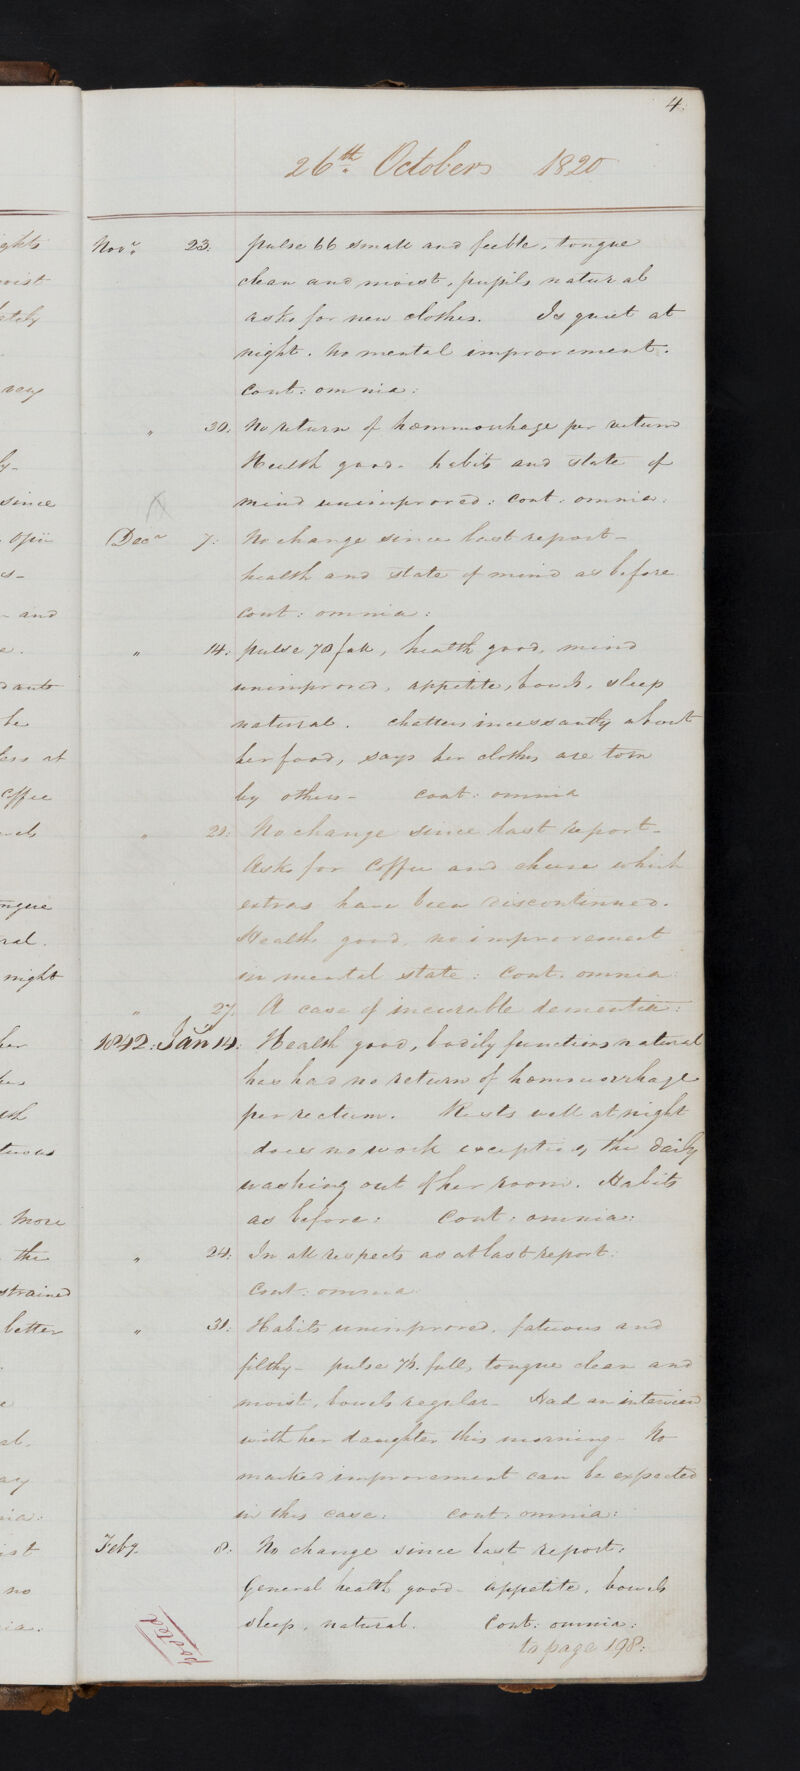 4.
26th. October 1820
Novr. 23: pulse 66 small and feeble, tongue
clean and moist, pupils natural
asks for new clothes. Is quiet at
night. No mental improvement.
Cont: omnia:
" 30: No return of hæmmorrhage per rectum
Health good. habits and state of
mind unimproved: Cont: omnia:
Decr 7: No change since last report-
health and state of mind as before
Cont: omnia:
" 14: pulse 70 full, health good, mind
unimproved, appetite, bowels, sleep
natural. Chatters incessantly about
her food, says her clothes are torn
by others- Cont: omnia
" 20: No change since last report-
Asks for Coffee and cheese which
extras have been discontinued.
Health good, no improvement
in mental state: Cont. omnia
" 27. A case of incurable dementia:
1842: Jan 14: Health good, bodily functions natural
has had no return of hæmmorrhage
per rectum. Rests well at night
does no work excepting the daily
washing out of her room. Habits
as before: Cont: omnia:
" 24: In all respects as at last report:
Cont: omnia
" 31: Habits unimproved, fatuous and
filthy- pulse 76. full, tongue clean and
moist, bowels regular- Had an interview
with her daughter this morning- No
marked improvement can be expected
in this case. Cont: omnia:
Feby. 8: No change since last report.
General health good- appetite, bowels
sleep, natural. Cont: omnia:
to page 198:
posted
ghts
moist
very
since
opii
and
he
less at
Coffee
tongue
natural.
night
her
more
the
strained
better
no